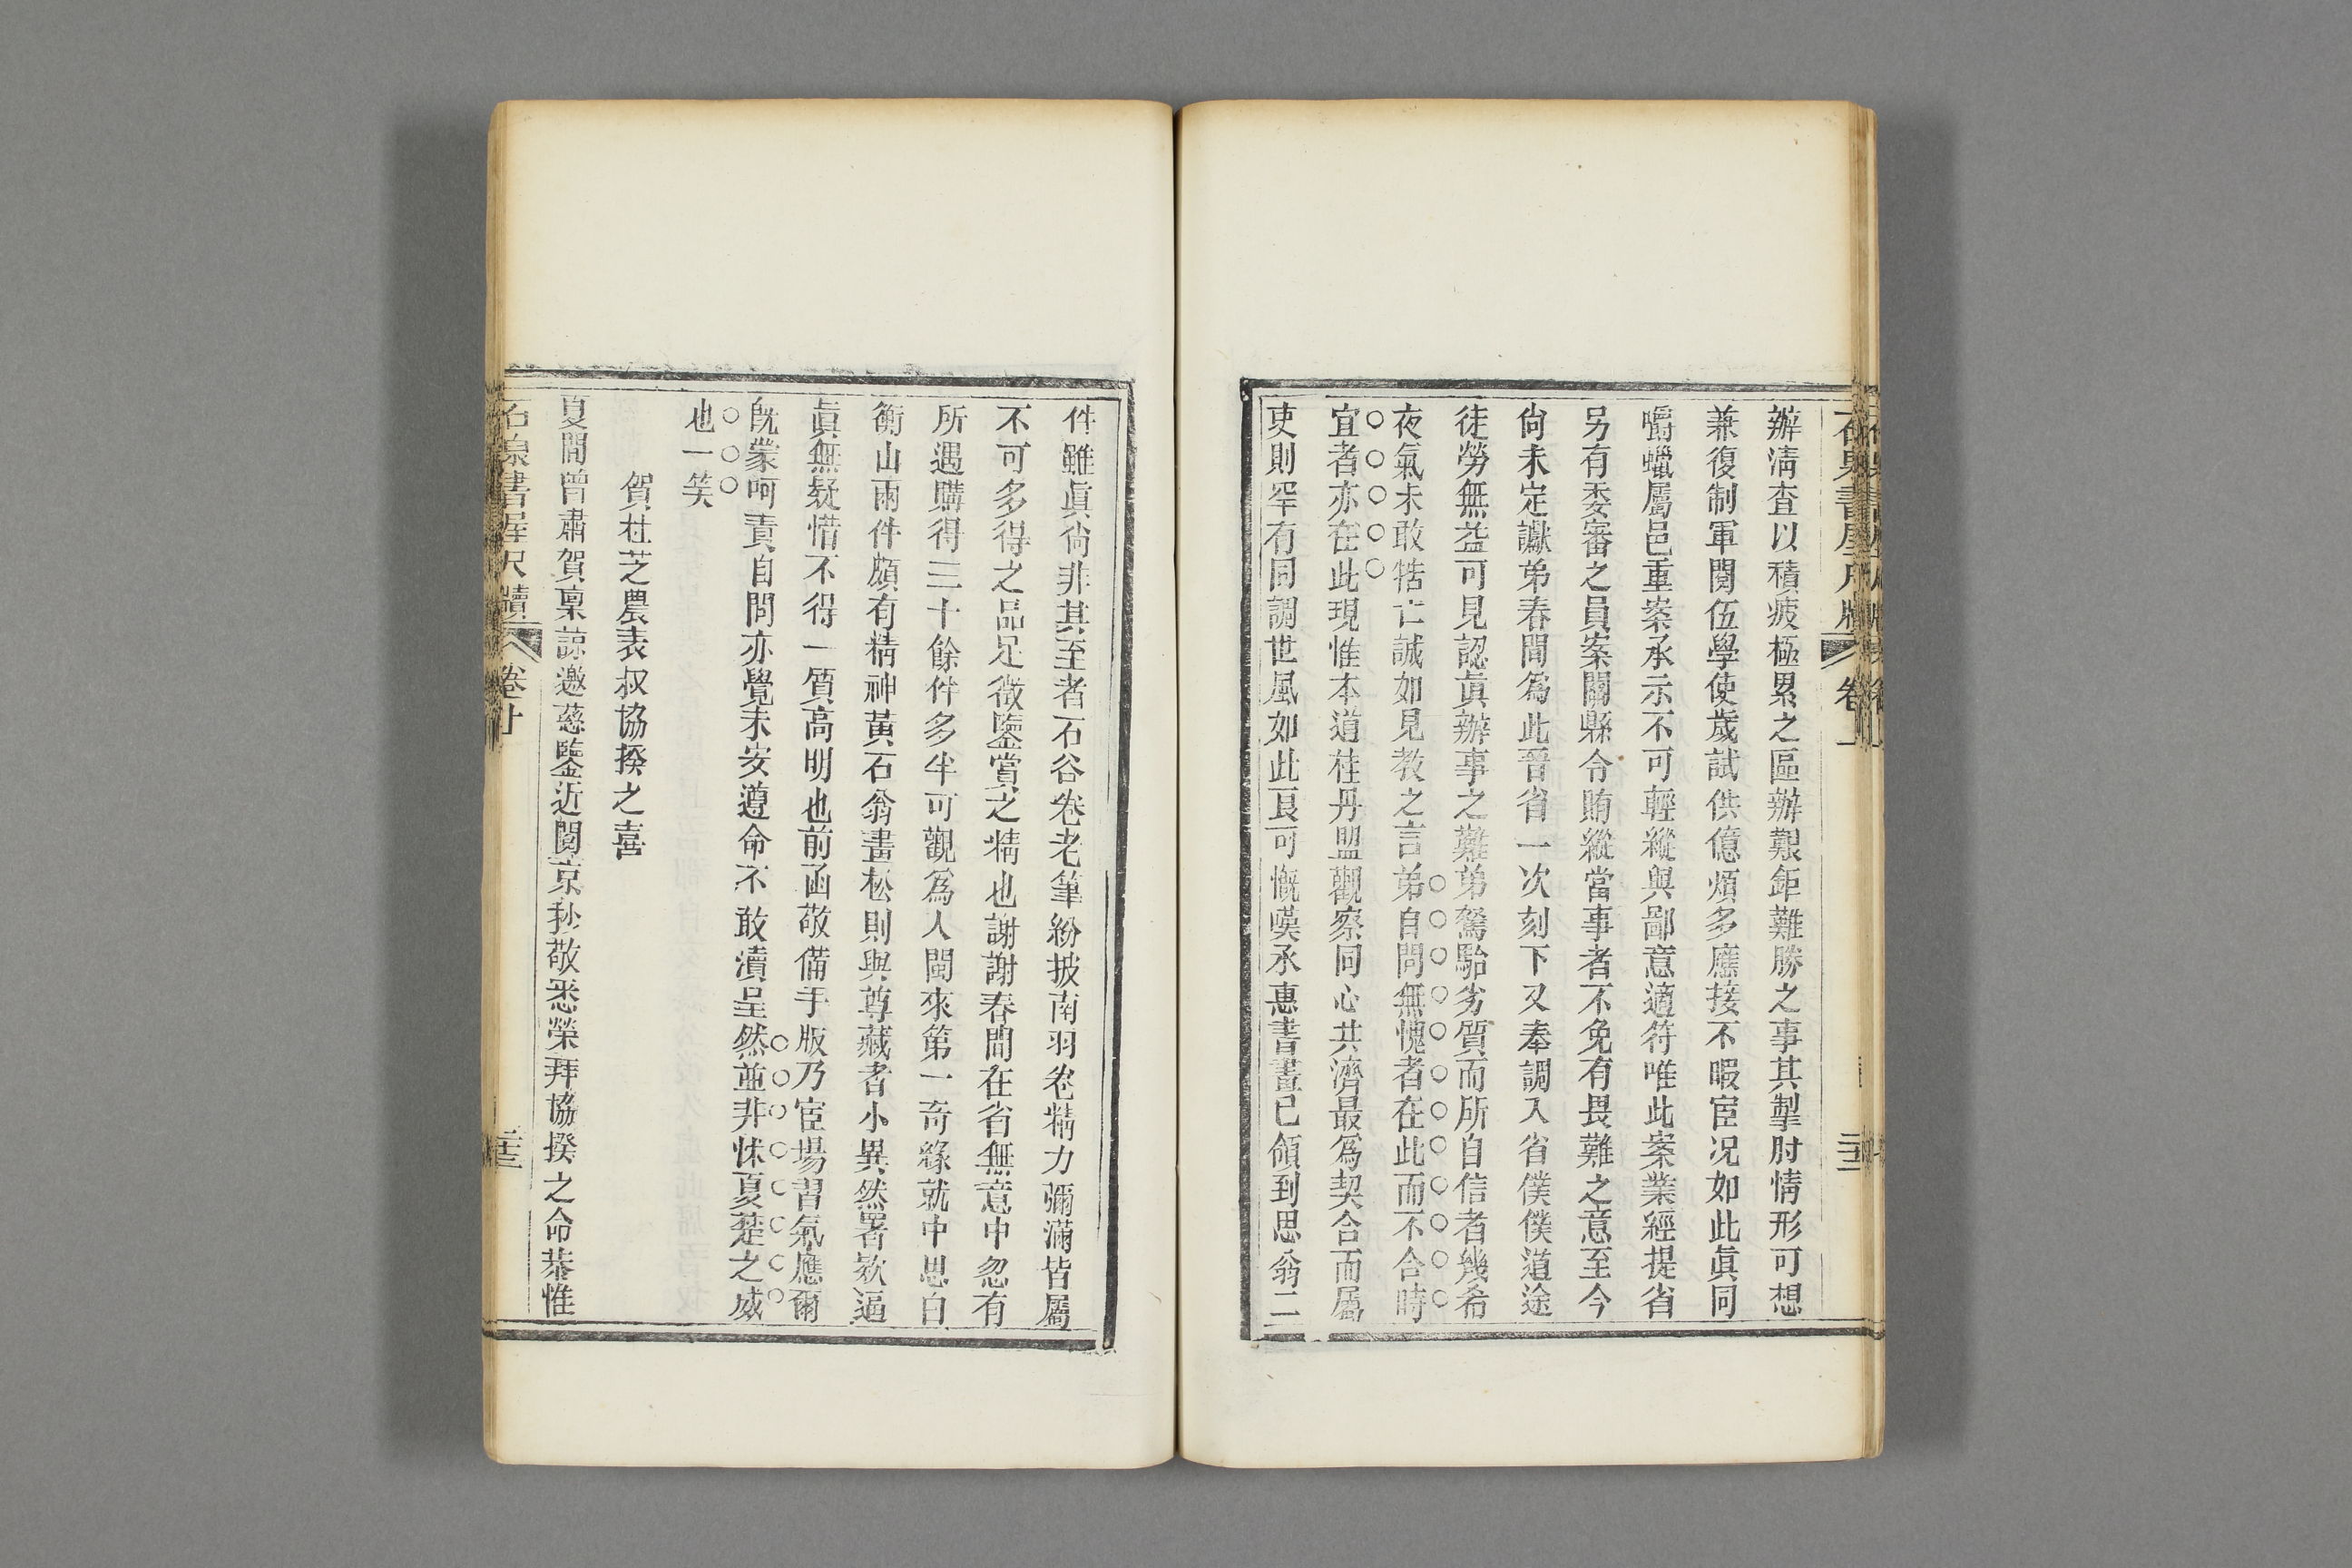 辦淸査以積疲極累之區辦艱鉅難勝之事其掣肘情形可想
兼復制軍閱伍學使歲試供億煩多應接不暇宦况如此眞同
嚼蠟屬邑重案承示不可輕縱與鄙意適符唯此案業經提省
另有委審之員案關縣令賄縱當事者不免有畏難之意至今
尙未定讞弟春間爲此晉省一次刻下又奉調入省僕僕道途
徒勞無益可見認眞辦事之難弟駑駘劣質而所自信者幾希
夜氣未敢牿亡誠如見教之言弟自問無愧者在此而不合時
宜者亦在此現惟本道桂丹盟觀察同心共濟最爲契合而屬
吏則罕有同調世風如此良可慨嘆承惠書畫已領到思翁二
件雖眞尙非其至者石谷卷老筆紛披南羽卷精力彌滿皆屬
不可多得之品足徵鑒賞之精也謝謝春間在省無意中忽有
所遇購得三十餘件多半可觀爲人閩來第一奇緣就中思白
衡山兩件頗有精神黃石翁畫松則與尊藏者小異然署欵逼
眞無疑惜不得一質高明也前函敬備手版乃宦場習氣應爾
旣蒙呵責自問亦覺未安遵命不敢瀆呈然並非怵夏楚之威
也一笑
賀杜芝農表叔協揆之喜
夏間曾肅賀稟諒邀慈鑒近閱京抄敬悉榮拜協揆之命恭惟
石泉書屋尺牘
卷廿